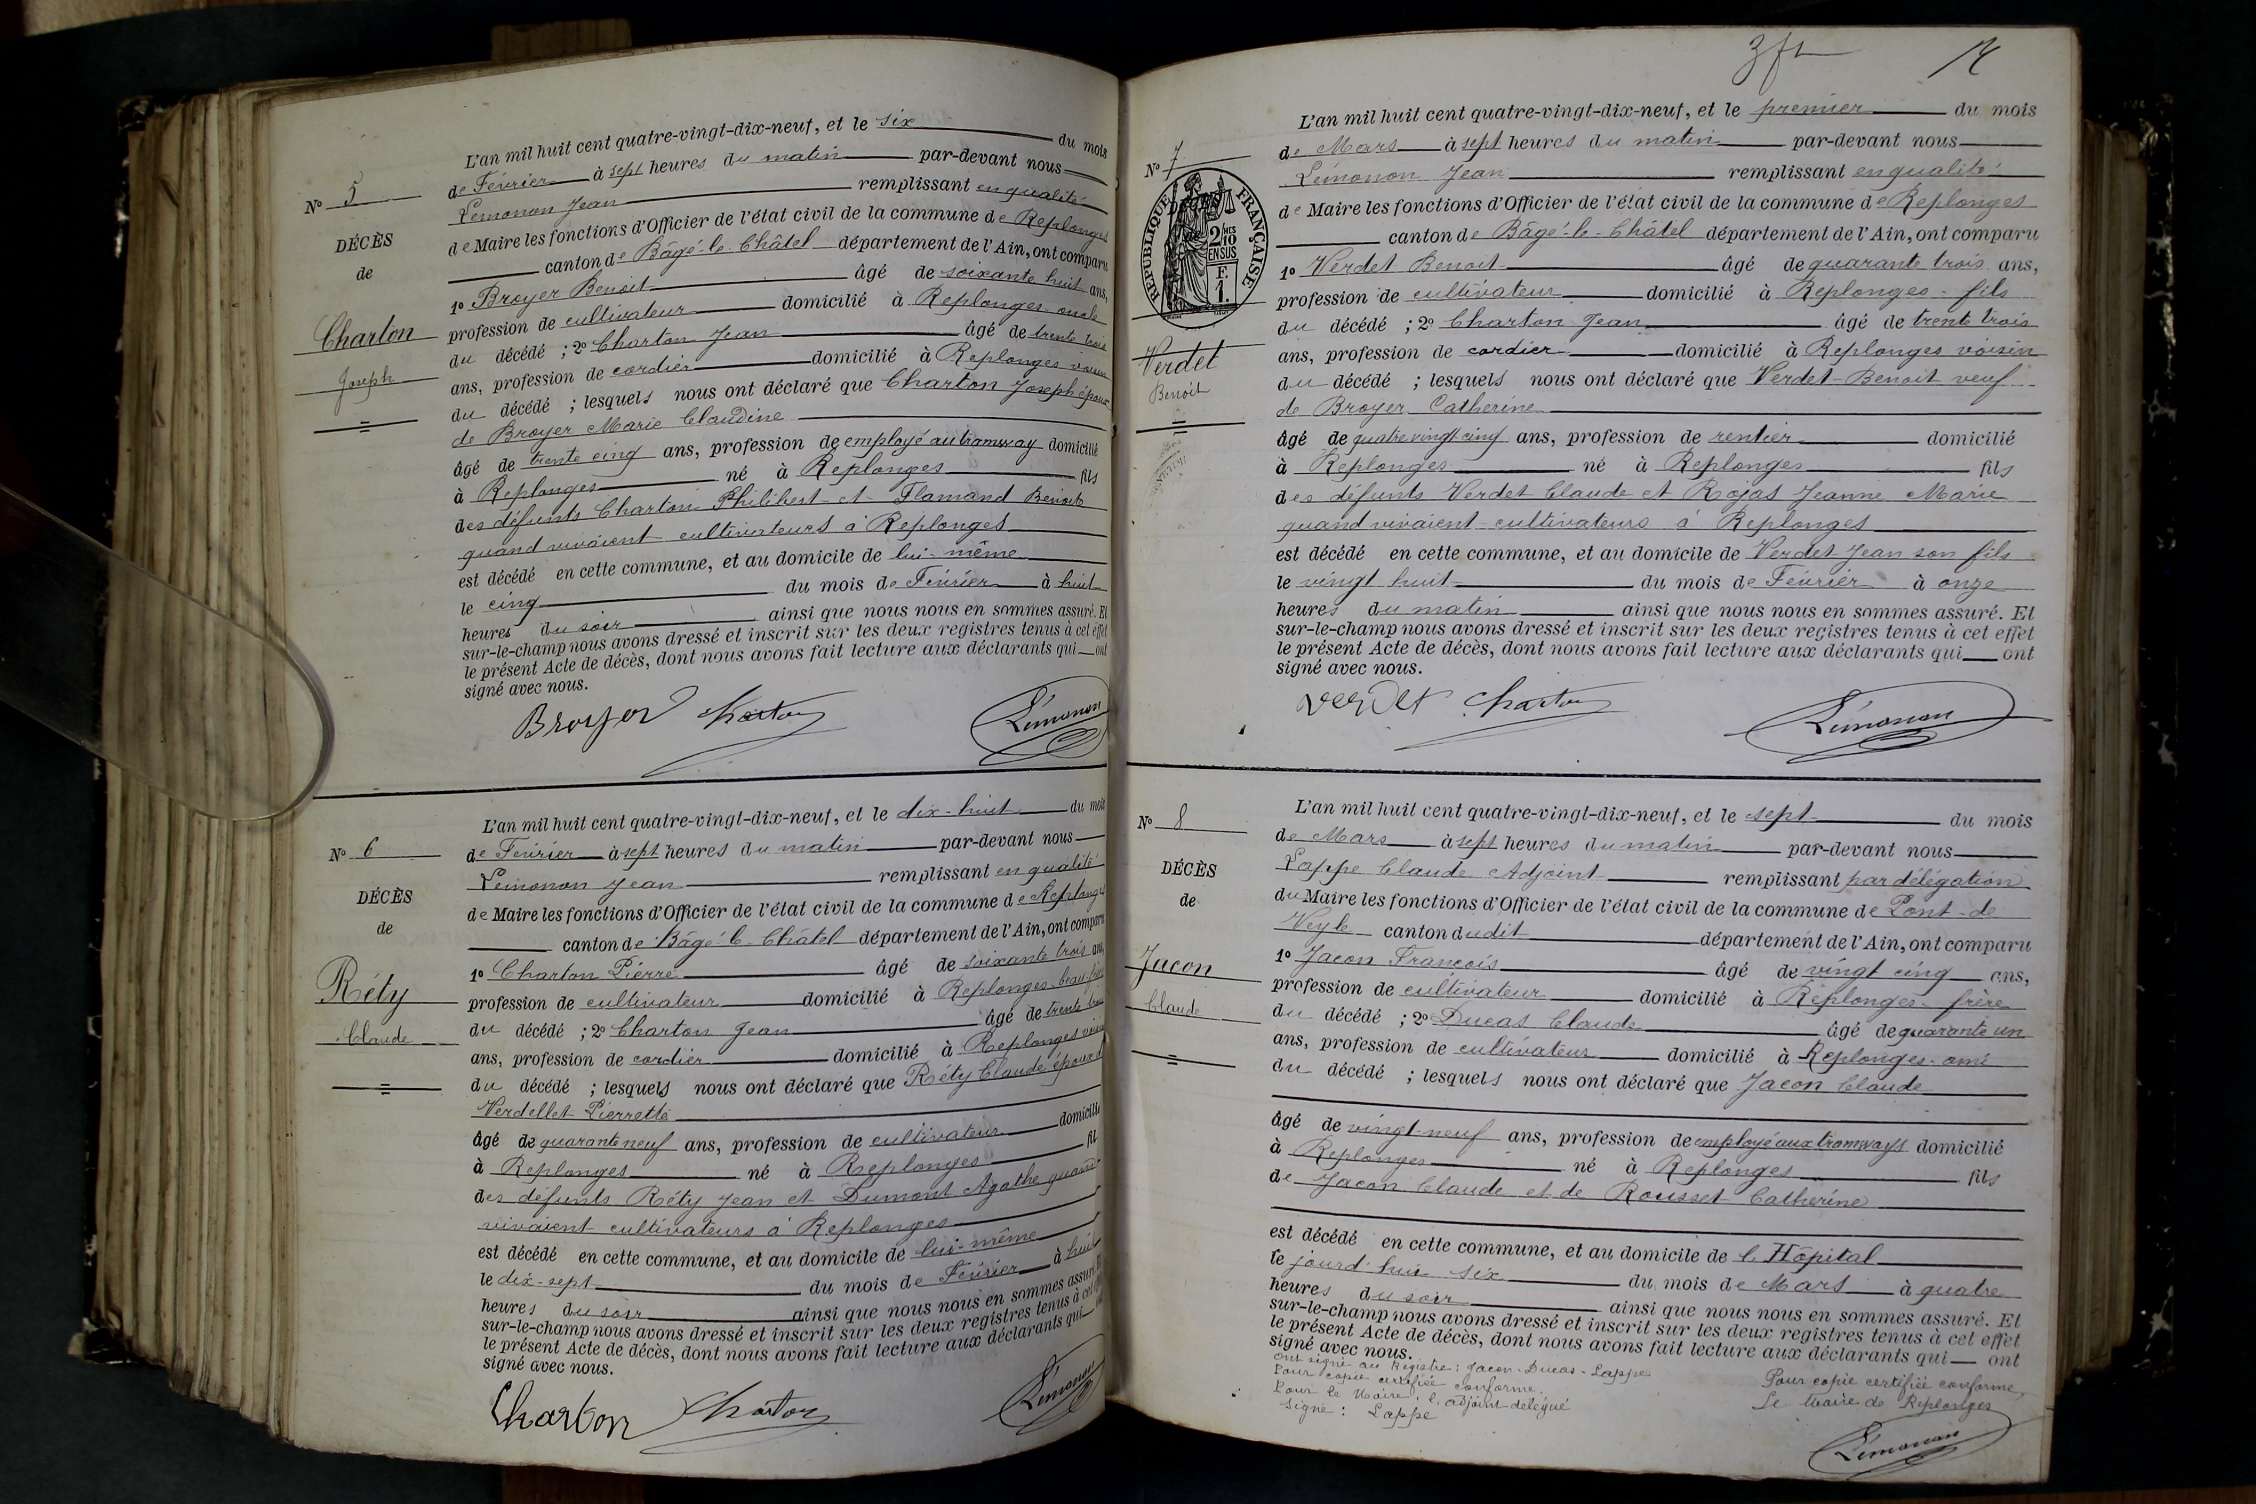 N° 5
DÉCÈS
de
Charton
Joseph
L'an mil huit cent quatre-vingt-dix-neuf, et le six du mois
de Février à sept heures du matin par-devant nous
Lémonon Jean remplissant en qualité
de Maire les fonctions d'Officier de l'état civil de la commune de Replonges
canton de Bâgé-le-Châtel département de l'Ain, ont comparu
1° Broyer Benoit âgé de soixante huit ans,
profession de cultivateur domicilié à Replonges oncle
du décédé ; 2° Charton Jean âgé de trente trois
ans, profession de cordier domicilié à Replonges voisin
du décédé ; lesquels nous ont déclaré que Charton Joseph époux
de Broyer Marie Claudine
âgé de trente cinq ans, profession de employé au tramway domicilié
à Replonges né à Replonges fils
des défunts Charton Philibert et Flamand Benoite
quand vivaient cultivateurs à Replonges
est décédé en cette commune, et au domicile de lui-même
le cinq du mois de Février à huit
heures du soir ainsi que nous nous en sommes assuré. Et
sur-le-champ nous avons dressé et inscrit sur les deux registres tenus à cet effet
le présent Acte de décès, dont nous avons fait lecture aux déclarants qui ont
signé avec nous.
Broyer Charton Lémonon
N° 6
DÉCÈS
de
Réty
Claude
L'an mil huit cent quatre-vingt-dix-neuf, et le dix-huit du mois
de Février à sept heures du matin par-devant nous
Lémonon Jean remplissant en qualité
de Maire les fonctions d'Officier de l'état civil de la commune de Replonges
canton de Bâgé-le-Châtel département de l'Ain, ont comparu
1° Charton Pierre âgé de soixante trois ans,
profession de cultivateur domicilié à Replonges beau-frère
du décédé ; 2° Charton Jean âgé de trente trois
ans, profession de cordier domicilié à Replonges voisin
du décédé ; lesquels nous ont déclaré que Réty Claude époux de
Verdellet Pierrette
âgé de quarante neuf ans, profession de cultivateur domicilié
à Replonges né à Replonges fil
des défunts Réty Jean et Dumont Agathe quand
vivaient cultivateurs à Replonges
est décédé en cette commune, et au domicile de lui-même
le dix-sept du mois de Février à huit
heures du soir ainsi que nous nous en sommes assuré. Et
sur-le-champ nous avons dressé et inscrit sur les deux registres tenus à cet effet
le présent Acte de décès, dont nous avons fait lecture aux déclarants qui ont
signé avec nous.
Charton Charton Lémonon
N° 7
RÉPUBLIQUE FRANÇAISE
DÉCÈS
2/10
EN SUS
F.
1.
Verdet
Benoit
L'an mil huit cent quatre-vingt-dix-neuf, et le premier du mois
de Mars à sept heures du matin par-devant nous
Lémonon Jean remplissant en qualité
de Maire les fonctions d'Officier de l'état civil de la commune de Replonges
canton de Bâgé-le-Châtel département de l'Ain, ont comparu
1° Verdet Benoit âgé de quarante trois ans,
profession de cultivateur domicilié à Replonges fils
du décédé ; 2° Charton Jean âgé de trente trois
ans, profession de cordier domicilié à Replonges voisin
du décédé ; lesquels nous ont déclaré que Verdet Benoit veuf
de Broyer Catherine
âgé de quatre vingt cinq ans, profession de rentier domicilié
à Replonges né à Replonges fils
des défunts Verdet Claude et Rojas Jeanne Marie
quand vivaient cultivateurs à Replonges
est décédé en cette commune, et au domicile de Verdet Jean son fils
le vingt huit du mois de Février à onze
heures du matin ainsi que nous nous en sommes assuré. Et
sur-le-champ nous avons dressé et inscrit sur les deux registres tenus à cet effet
le présent Acte de décès, dont nous avons fait lecture aux déclarants qui ont
signé avec nous.
Verdet Charton Lémonon
N° 8
DÉCÈS
de
Jacon
Claude
L'an mil huit cent quatre-vingt-dix-neuf, et le sept du mois
de Mars à sept heures du matin par-devant nous
Lappe Claude Adjoint remplissant par délégation
du Maire les fonctions d'Officier de l'état civil de la commune de Pont-de
Veyle canton dudit département de l'Ain, ont comparu
1° Jacon François âgé de vingt cinq ans,
profession de cultivateur domicilié à Replonges frère
du décédé ; 2° Ducas Claude âgé de quarante un
ans, profession de cultivateur domicilié à Replonges ami
du décédé ; lesquels nous ont déclaré que Jacon Claude
âgé de vingt-neuf ans, profession de employé aux tramways domicilié
à Replonges né à Replonges fils
de Jacon Claude et de Rousset Catherine
est décédé en cette commune, et au domicile de l'Hôpital
le jourd'hui six du mois de Mars à quatre
heures du soir ainsi que nous nous en sommes assuré. Et
sur-le-champ nous avons dressé et inscrit sur les deux registres tenus à cet effet
le présent Acte de décès, dont nous avons fait lecture aux déclarants qui ont
signé avec nous.
ont signé au Registre : Jacon - Ducas - Lappe
Pour copie certifiée conforme.
Pour le Maire, l'adjoint délégué
Signé : Lappe
Pour copie certifiée conforme
Le Maire de Replonges
Lémonon